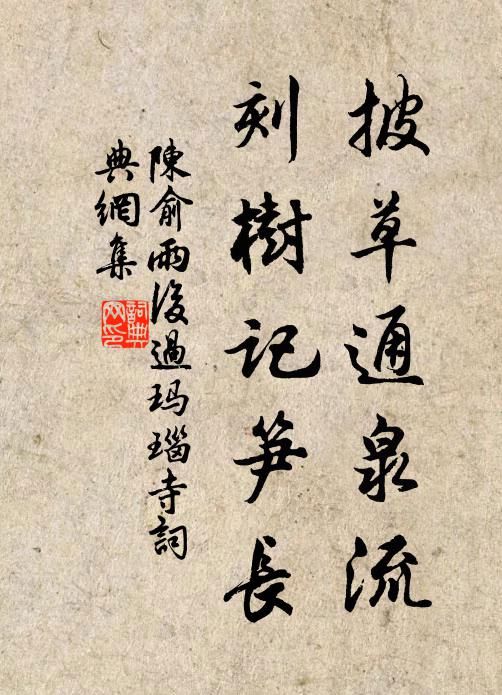 披草通泉流
刻樹記笋長
陳俞雨後過玛瑙寺詞
典網集
詞典
网印